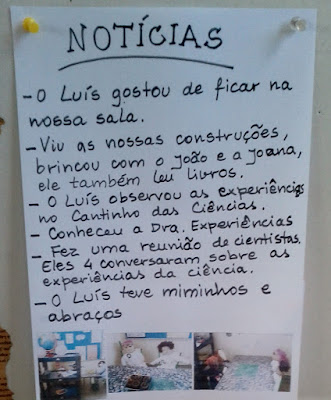 NOTÍCIAS
- O Luís gostou de ficar na
nossa sala.
- Viu as nossas construções,
brincou com o João e a Joana,
ele também leu livros.
- O Luís observou as experiências
no Cantinho das Ciências.
- Conheceu a Dra. Experiências
- Fez uma reunião de cientistas.
Eles 4 conversaram sobre as
experiências da ciência.
- O Luís teve miminhos e
abraços